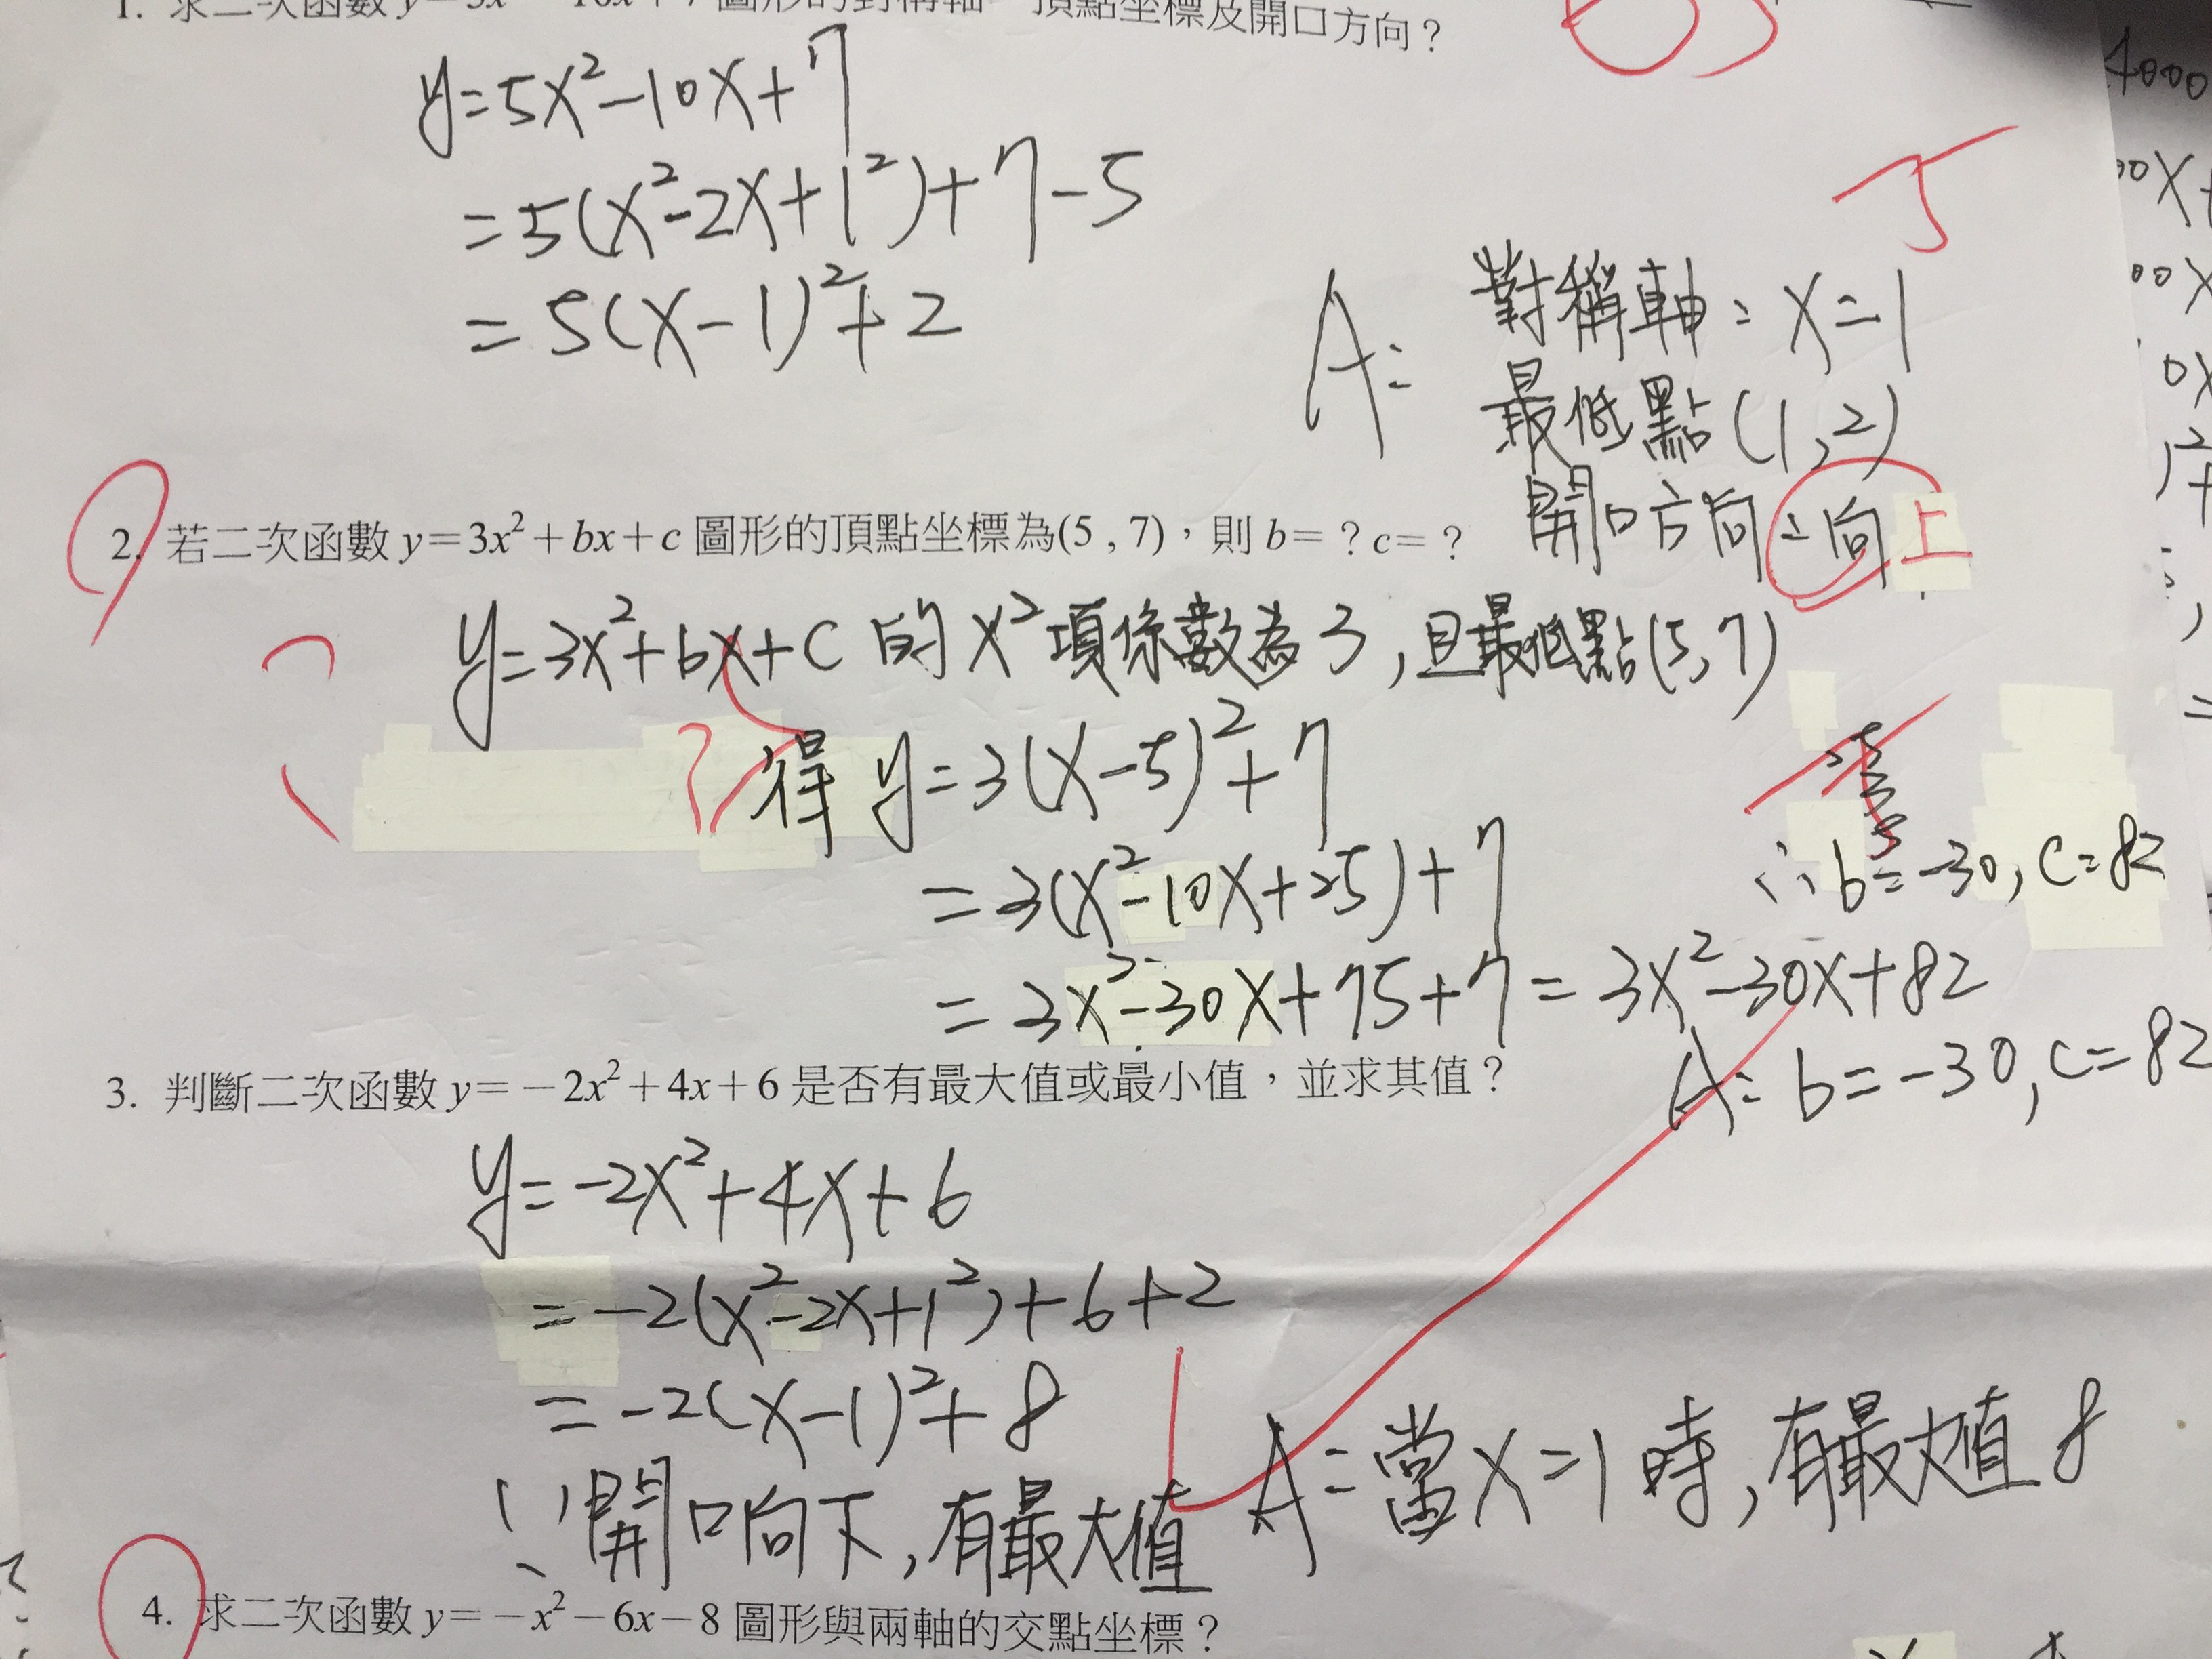 1. 求二次函數 y=5x²-10x+7 圖形的對稱軸、頂點坐標及開口方向？
y=5x²-10x+7
=5(x²-2x+1²)+7-5
=5(x-1)²+2
A= 對稱軸：x=1
最低點(1,2)
開口方向：向上
2. 若二次函數 y=3x²+bx+c 圖形的頂點坐標為(5,7)，則 b=？c=？
y=3x²+bx+c 的 x² 項係數為3,且最低點(5,7)
得 y=3(x-5)²+7
=3(x²-10x+25)+7
∴b=-30,c=82
=3x²-30x+75+7=3x²-30x+82
A= b=-30,c=82
3. 判斷二次函數 y=-2x²+4x+6 是否有最大值或最小值，並求其值？
y=-2x²+4x+6
=-2(x²-2x+1²)+6+2
=-2(x-1)²+8
∵開口向下,有最大值
A=當x=1時,有最大值8
4. 求二次函數 y=-x²-6x-8 圖形與兩軸的交點坐標？
4000